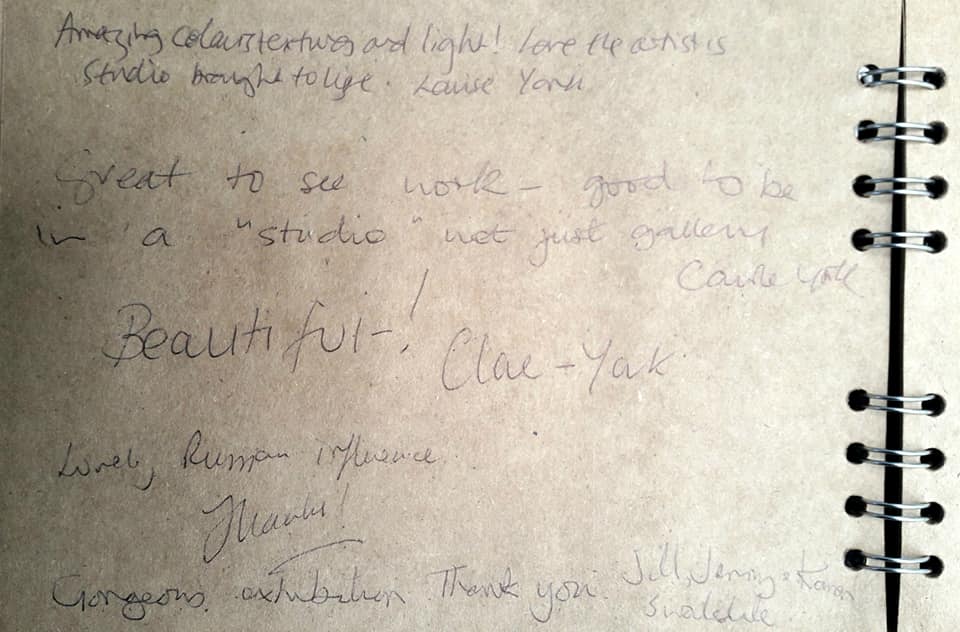 Amazing colours textures and light! Love the artist is
studio brought to life. Louise York
Great to see work - good to be
in a "studio" not just gallery
York
Beautiful! Clare - York
Lovely Russian influence
Thanks!
Gorgeous exhibition Thank you. Jill, Jenny & Karen